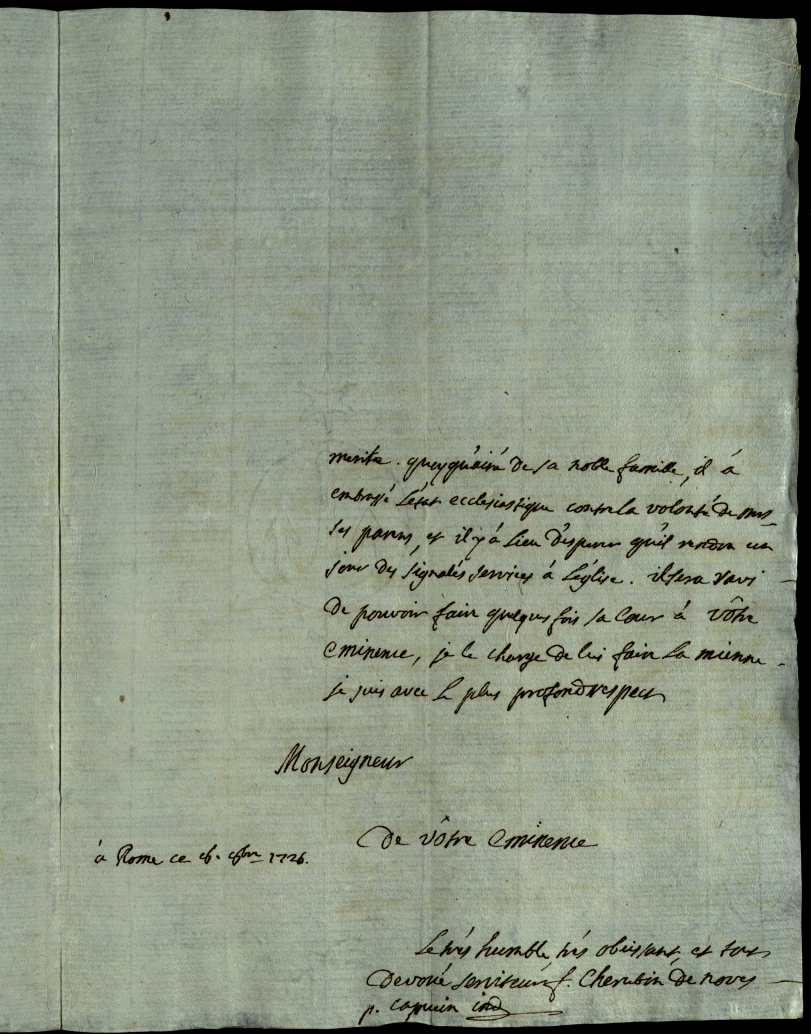 merite. quoyqu'ainé de sa noble famille, il á
embrassé L'état ecclesiastique contre la volonté de mrs
ses parens, et il y á Lieu d'esperer qu'il rendra un
jour des signalés services á L'église. il sera ravi
de pouvoir faire quelques fois sa Cour á vôtre
Eminence, je le charge de lui faire La mienne.
je suis avec le plus profond respect
Monseigneur
De vôtre Eminence
á Rome ce 1726.
Le trés humble, trés obeissant, et tout
Devoüé serviteur f. Cherubin de noves
p. capucin ind